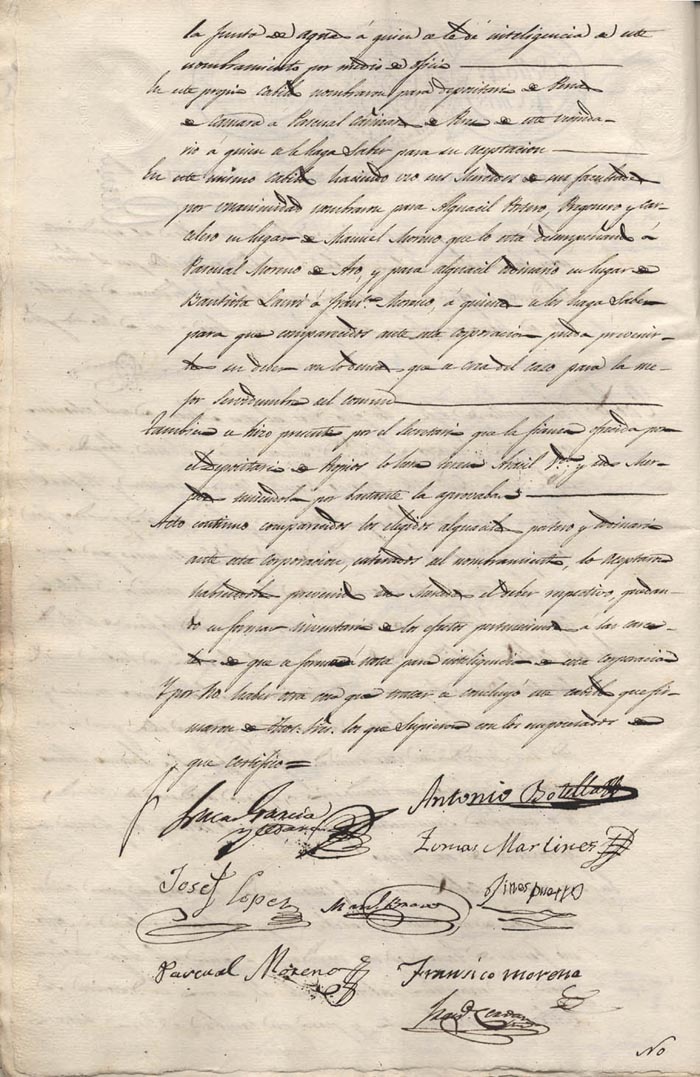 la Junta de agua á quien se le dé inteligencia de este
nombramiento por medio de oficio
En este propio Cabildo nombraron para depositario de Penas
de Camara á Pascual de este vecinda-
rio a quien se le haga saber para su aceptacion
En este mismo Cabildo haciendo uso sus Mercedes de sus facultades
por unanimidad nombraron para Alguacil Portero, Pregonero y Car-
celero en lugar de Manuel Moreno que lo está desempeñando á
Pascual Moreno de Aro, y para alguacil ordinario en lugar de
Bautista á Franco. Moreno, á quienes se les haga saber
para que comparecidos ante esta corporación pueda prevenir-
les su deber con lo demas que sea del caso para la me-
jor servidumbre del comun
Tambien se hizo presente por el Secretario que la fianza ofrecida por
el Depositario de Propios y sus Mer-
cedes por bastante la aprovaban
Acto continuo comparecidos los elegidos alguaciles portero y ordinario
ante esta corporacion, enterados del nombramiento, lo aceptaron
habiendoles prevenido sus Mercedes el deber respectivo, quedan-
do en formar inventario de los efectos pertenecientes a las carce-
les de que se formará nota para inteligencia de esta corporación
Y por no haber otra cosa que tratar se concluyó este cabildo que fir-
maron dichos Sres. los que supieron con los de
que certifico=
Luca Garcia
Antonio Botella
Tomas Martines
Josef Lopez
Manl. Bravo
Gines
Pascual Moreno
Fransico morena
No